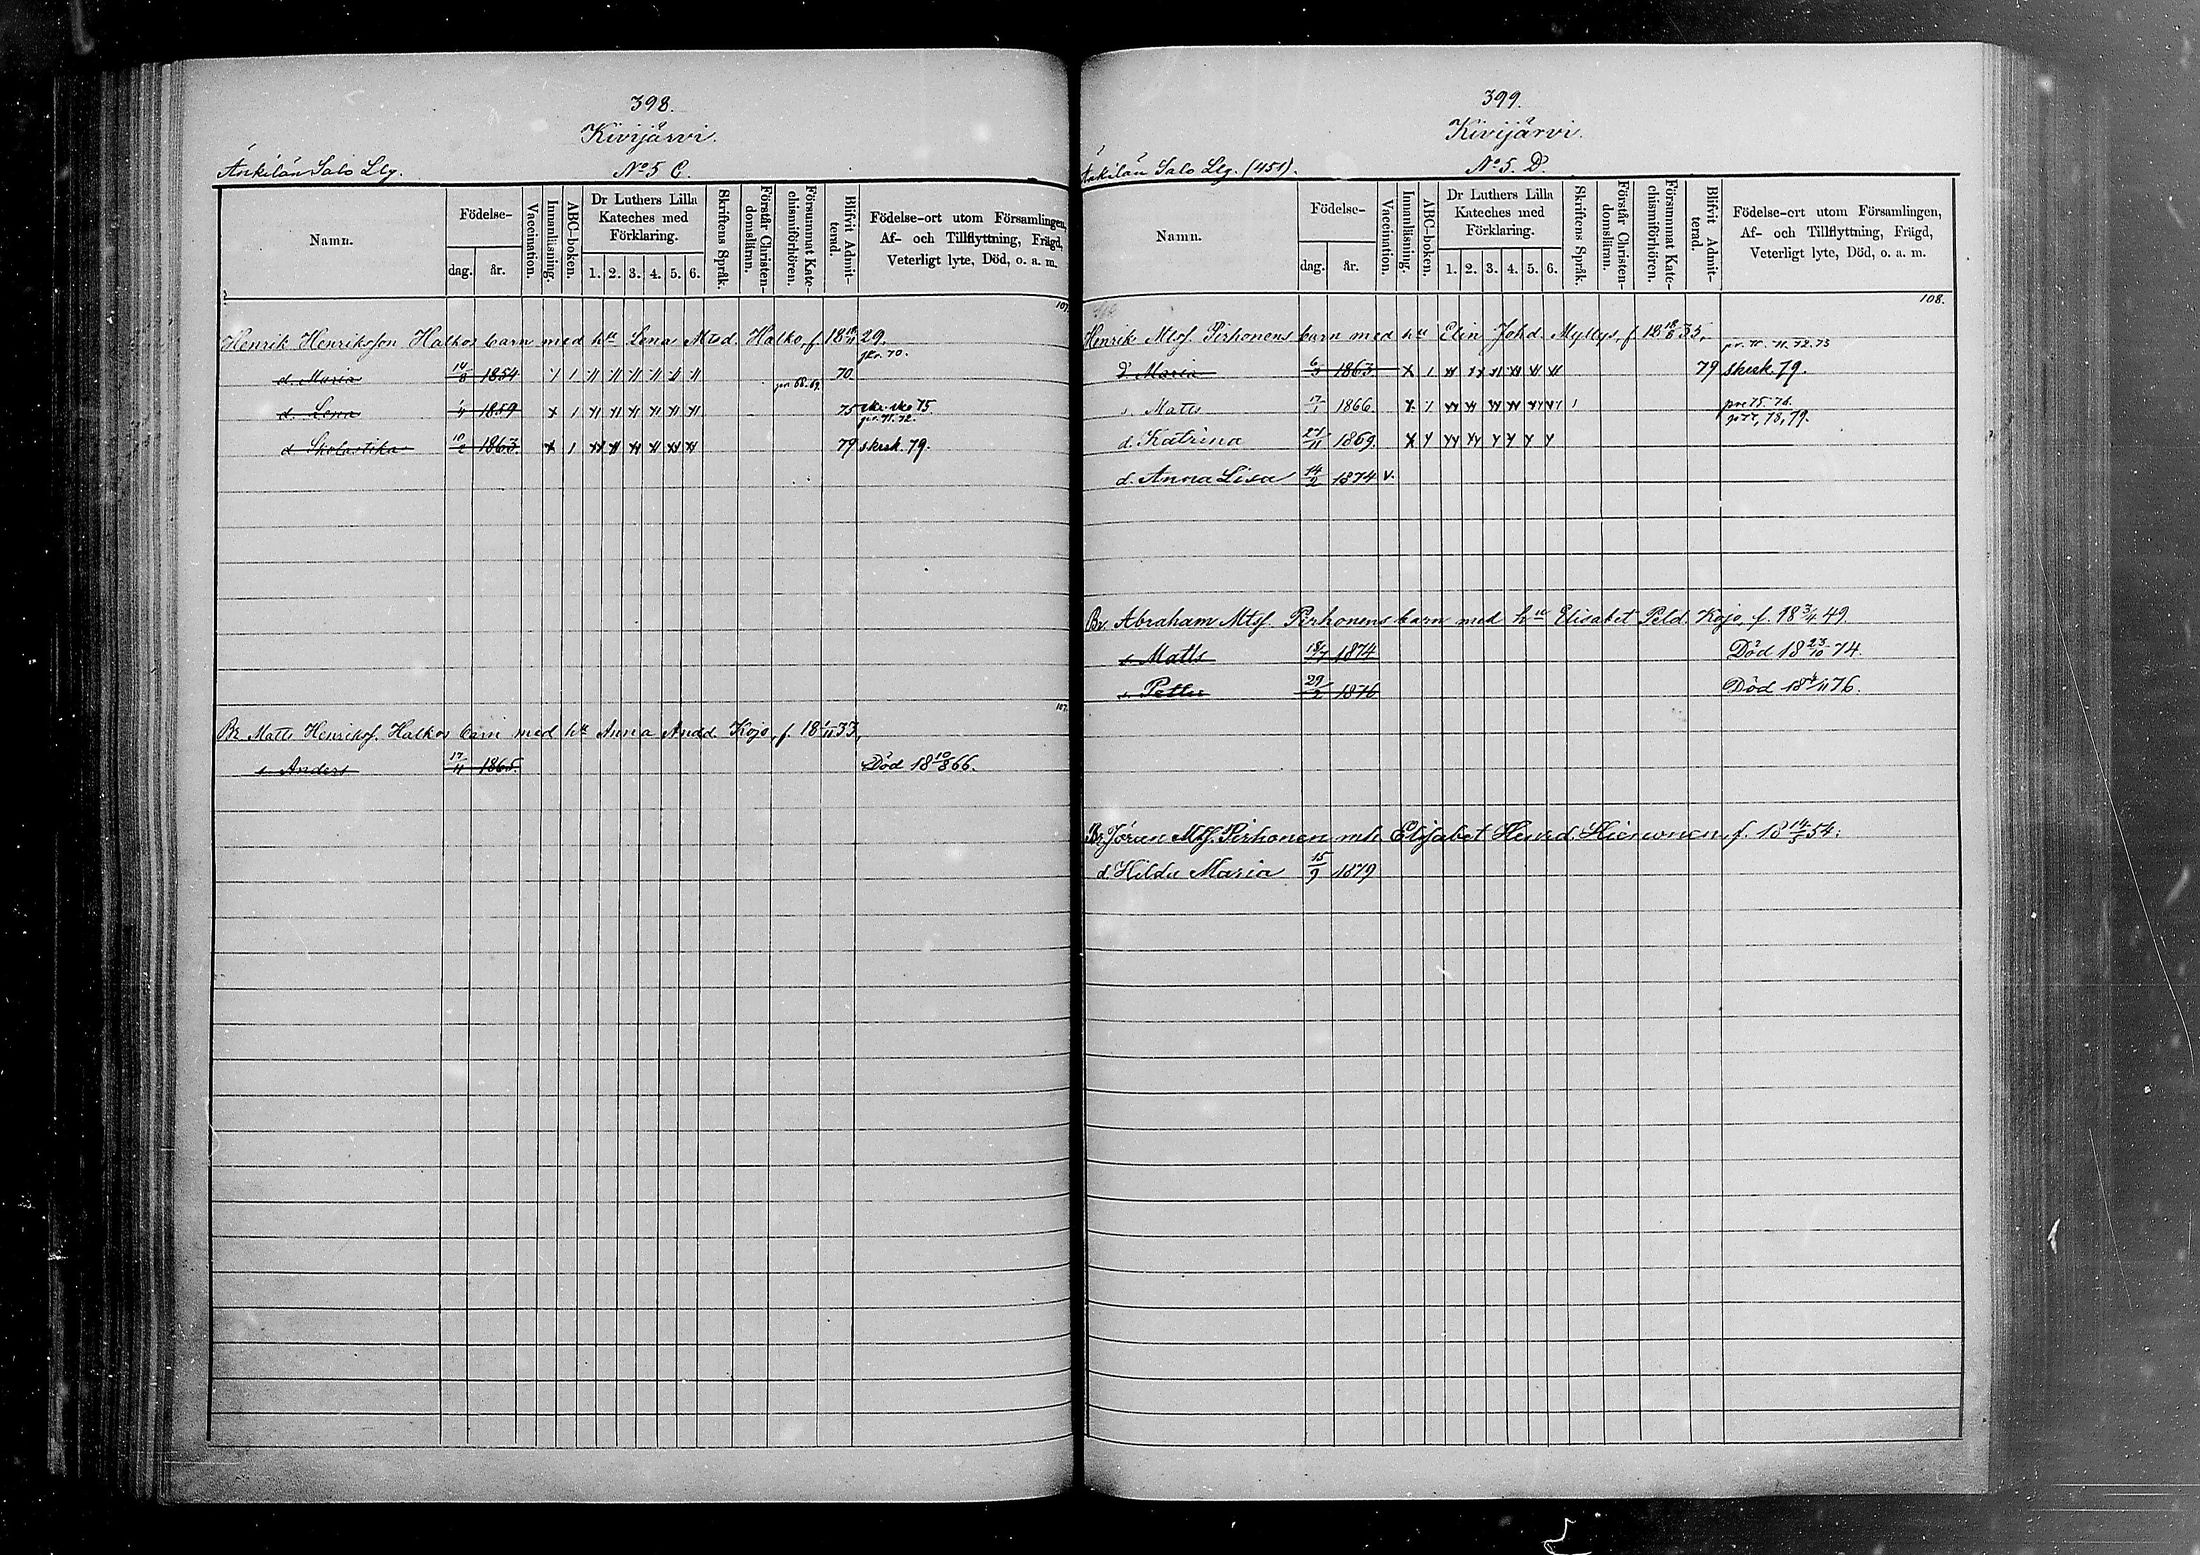 398.
Kivijärvi.
Änkilän Salo Llg. No 5 C.
Namn.
Födelse-
dag. år.
Vaccination.
Innanläsning.
ABC-boken.
Dr Luthers Lilla
Kateches med
Förklaring.
1. 2. 3. 4. 5. 6.
Skriftens Språk.
Förstår Christen-
domsläran.
Försummat Kate-
chismiförhören.
Blifvit Admit-
terad.
Födelse-ort utom Församlingen,
Af- och Tillflyttning, Frägd,
Veterligt lyte, Död, o. a. m.
107.
Henrik Henriksson Halkos barn med hu Lena Mtsd. Halko, f. 18 29.
pr. 70.
d. Maria 1854 70.
pr 68. 69.
d. Lena 1859 75 75
pr. 71. 72.
d. Skolastika 10/2 1863. 79 skrsk. 79.
107.
Br. Matts Henrikss. Halkos barn med hu Anna Andd. Kojo, f. 18 1/11 33,
s Anders 17/11 1865. Död 18 10/8 66.
399.
Kivijärvi.
Änkilän Salo Llg. (451). No 5. D.
Namn.
Födelse-
dag. år.
Vaccination.
Innanläsning.
ABC-boken.
Dr Luthers Lilla
Kateches med
Förklaring.
1. 2. 3. 4. 5. 6.
Skriftens Språk.
Förstår Christen-
domsläran.
Försummat Kate-
chismiförhören.
Blifvit Admit-
terad.
Födelse-ort utom Församlingen,
Af- och Tillflyttning, Frägd,
Veterligt lyte, Död, o. a. m.
108.
Henrik Mtss. Pirhonens barn med hu Elin Johd. Myllys, f. 18 18/8 35,
71. 72. 73
d Maria 6/3 1863. 79 skrsk. 79.
s Matts 17/1 1866. pr 75. 76.
78, 79.
d. Katrina 27/11 1869.
d. Anna Lisa 14/2 1874 v.
Br Abraham Mtss. Pirhonens barn med hu Elisabet Peld. Kojo, f. 18 3/4 49
s Matts 18/7 1874 Död 18 23/10 74.
s. Petter 29/2 1876 Död 18 /11 76.
Br Jöran Mtss. Pirhonen mh Elisabet Henrd. f. 18 14/5 54.
d Hilda Maria 15/9 1879